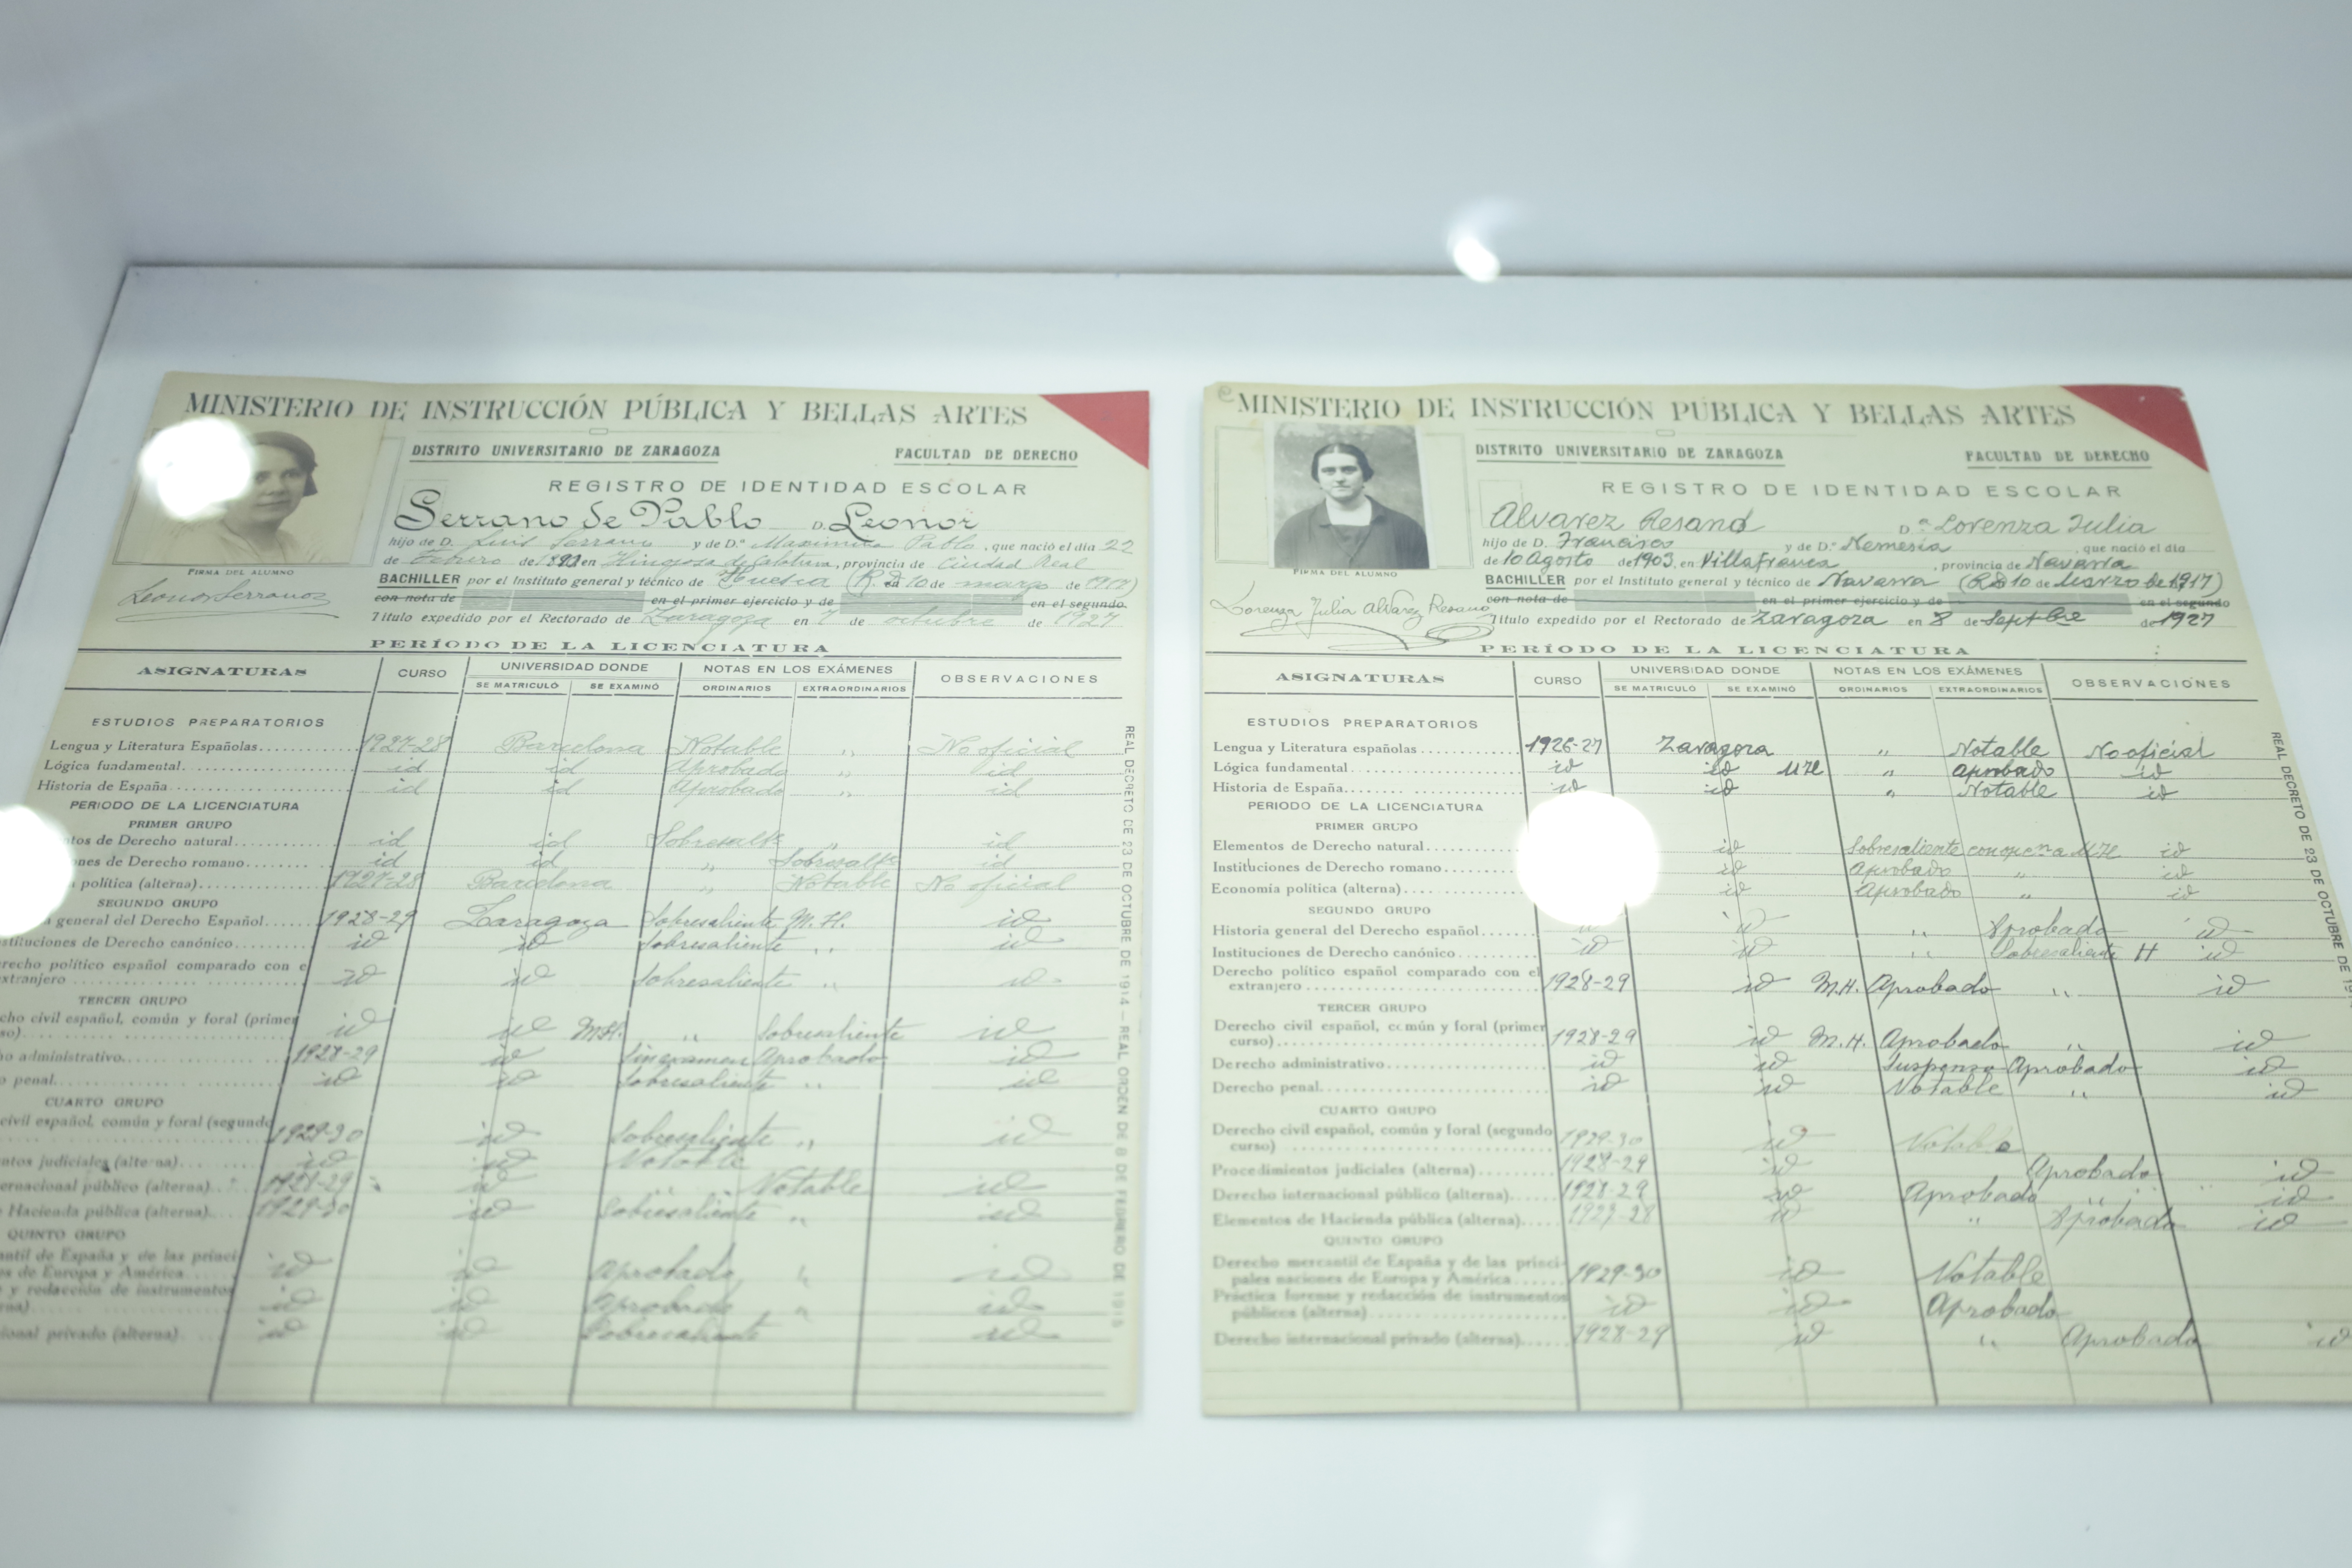 MINISTERIO DE INSTRUCCIÓN PÚBLICA Y BELLAS ARTES
DISTRITO UNIVERSITARIO DE ZARAGOZA FACULTAD DE DERECHO
REGISTRO DE IDENTIDAD ESCOLAR
Serrano de Pablo D. Leonor
hijo de D. Luis Serrano y de D.ª Maximina Pablo, que nació el día 22
de Febrero de 18 en Hinojosa de Calatrava, provincia de Ciudad Real
BACHILLER por el Instituto general y técnico de Huesca (R. d. 10 de marzo de 1917)
con nota de en el primer ejercicio y de en el segundo.
Título expedido por el Rectorado de Zaragoza en 7 de octubre de 1927
FIRMA DEL ALUMNO
Leonor Serrano
PERÍODO DE LA LICENCIATURA
ASIGNATURAS CURSO UNIVERSIDAD DONDE NOTAS EN LOS EXÁMENES OBSERVACIONES
SE MATRICULÓ SE EXAMINÓ ORDINARIOS EXTRAORDINARIOS
ESTUDIOS PREPARATORIOS
Lengua y Literatura Españolas 1927-28 Barcelona Notable " No oficial
Lógica fundamental id id Aprobado " id
Historia de España id id Aprobado " id
PERIODO DE LA LICENCIATURA
PRIMER GRUPO
tos de Derecho natural id id Sobresalte " id
nes de Derecho romano id id " Sobresalte id
política (alterna) 1927-28 Barcelona " Notable No oficial
SEGUNDO GRUPO
general del Derecho Español 1928-29 Zaragoza Sobresaliente M. H. id
stituciones de Derecho canónico id id Sobresaliente " id
recho político español comparado con e
xtranjero id id Sobresaliente " id
TERCER GRUPO
cho civil español, común y foral (primer
so) id id M.H. " Sobresaliente id
o administrativo 1928-29 id Sin examen Aprobado id
o penal id id Sobresaliente " id
CUARTO GRUPO
civil español, común y foral (segundo
1929-30 id Sobresaliente " id
ntos judiciales (alterna) id id Notable
ernacional público (alterna) 1928-29 id " Notable id
Hacienda pública (alterna) 1929-30 id Sobresaliente " id
QUINTO GRUPO
antil de España y de las princi-
s de Europa y América id id Aprobado " id
y redacción de instrumentos
rna) id id Aprobado " id
ional privado (alterna) id id Sobresaliente id
REAL DECRETO DE 23 DE OCTUBRE DE 1914 — REAL ORDEN DE 8 DE FEBRERO DE 1915
MINISTERIO DE INSTRUCCIÓN PÚBLICA Y BELLAS ARTES
DISTRITO UNIVERSITARIO DE ZARAGOZA FACULTAD DE DERECHO
REGISTRO DE IDENTIDAD ESCOLAR
Alvarez Resano D.ª Lorenza Julia
hijo de D. Francisco y de D.ª Nemesia, que nació el día
de 10 Agosto de 1903, en Villafranca, provincia de Navarra
BACHILLER por el Instituto general y técnico de Navarra (RD 10 de Marzo de 1917)
con nota de en el primer ejercicio y de en el segundo
Título expedido por el Rectorado de Zaragoza en 8 de Septbre de 1927
FIRMA DEL ALUMNO
Lorenza Julia Alvarez Resano
PERÍODO DE LA LICENCIATURA
ASIGNATURAS CURSO UNIVERSIDAD DONDE NOTAS EN LOS EXÁMENES OBSERVACIONES
SE MATRICULÓ SE EXAMINÓ ORDINARIOS EXTRAORDINARIOS
ESTUDIOS PREPARATORIOS
Lengua y Literatura españolas 1926-27 Zaragoza " Notable No oficial
Lógica fundamental id id " Aprobado id
Historia de España id id " Notable id
PERIODO DE LA LICENCIATURA
PRIMER GRUPO
Elementos de Derecho natural id Sobresaliente id
Instituciones de Derecho romano id Aprobado " id
Economía política (alterna) id Aprobado " id
SEGUNDO GRUPO
Historia general del Derecho español id " Aprobado id
Instituciones de Derecho canónico id id " Sobresaliente H id
Derecho político español comparado con el
extranjero 1928-29 id M.H. Aprobado " id
TERCER GRUPO
Derecho civil español, común y foral (primer
curso) 1928-29 id M.H. Aprobado " id
Derecho administrativo id id Suspenso Aprobado id
Derecho penal id id Notable " id
CUARTO GRUPO
Derecho civil español, común y foral (segundo
curso) 1929-30 id Notable
Procedimientos judiciales (alterna) 1928-29 id Aprobado id
Derecho internacional público (alterna) 1928-29 id Aprobado " id
Elementos de Hacienda pública (alterna) 1927-28 id " Aprobado id
QUINTO GRUPO
Derecho mercantil de España y de las princi-
pales naciones de Europa y América 1929-30 id Notable
Práctica forense y redacción de instrumentos
públicos (alterna) id id Aprobado
Derecho internacional privado (alterna) 1928-29 id " Aprobado id
REAL DECRETO DE 23 DE OCTUBRE DE